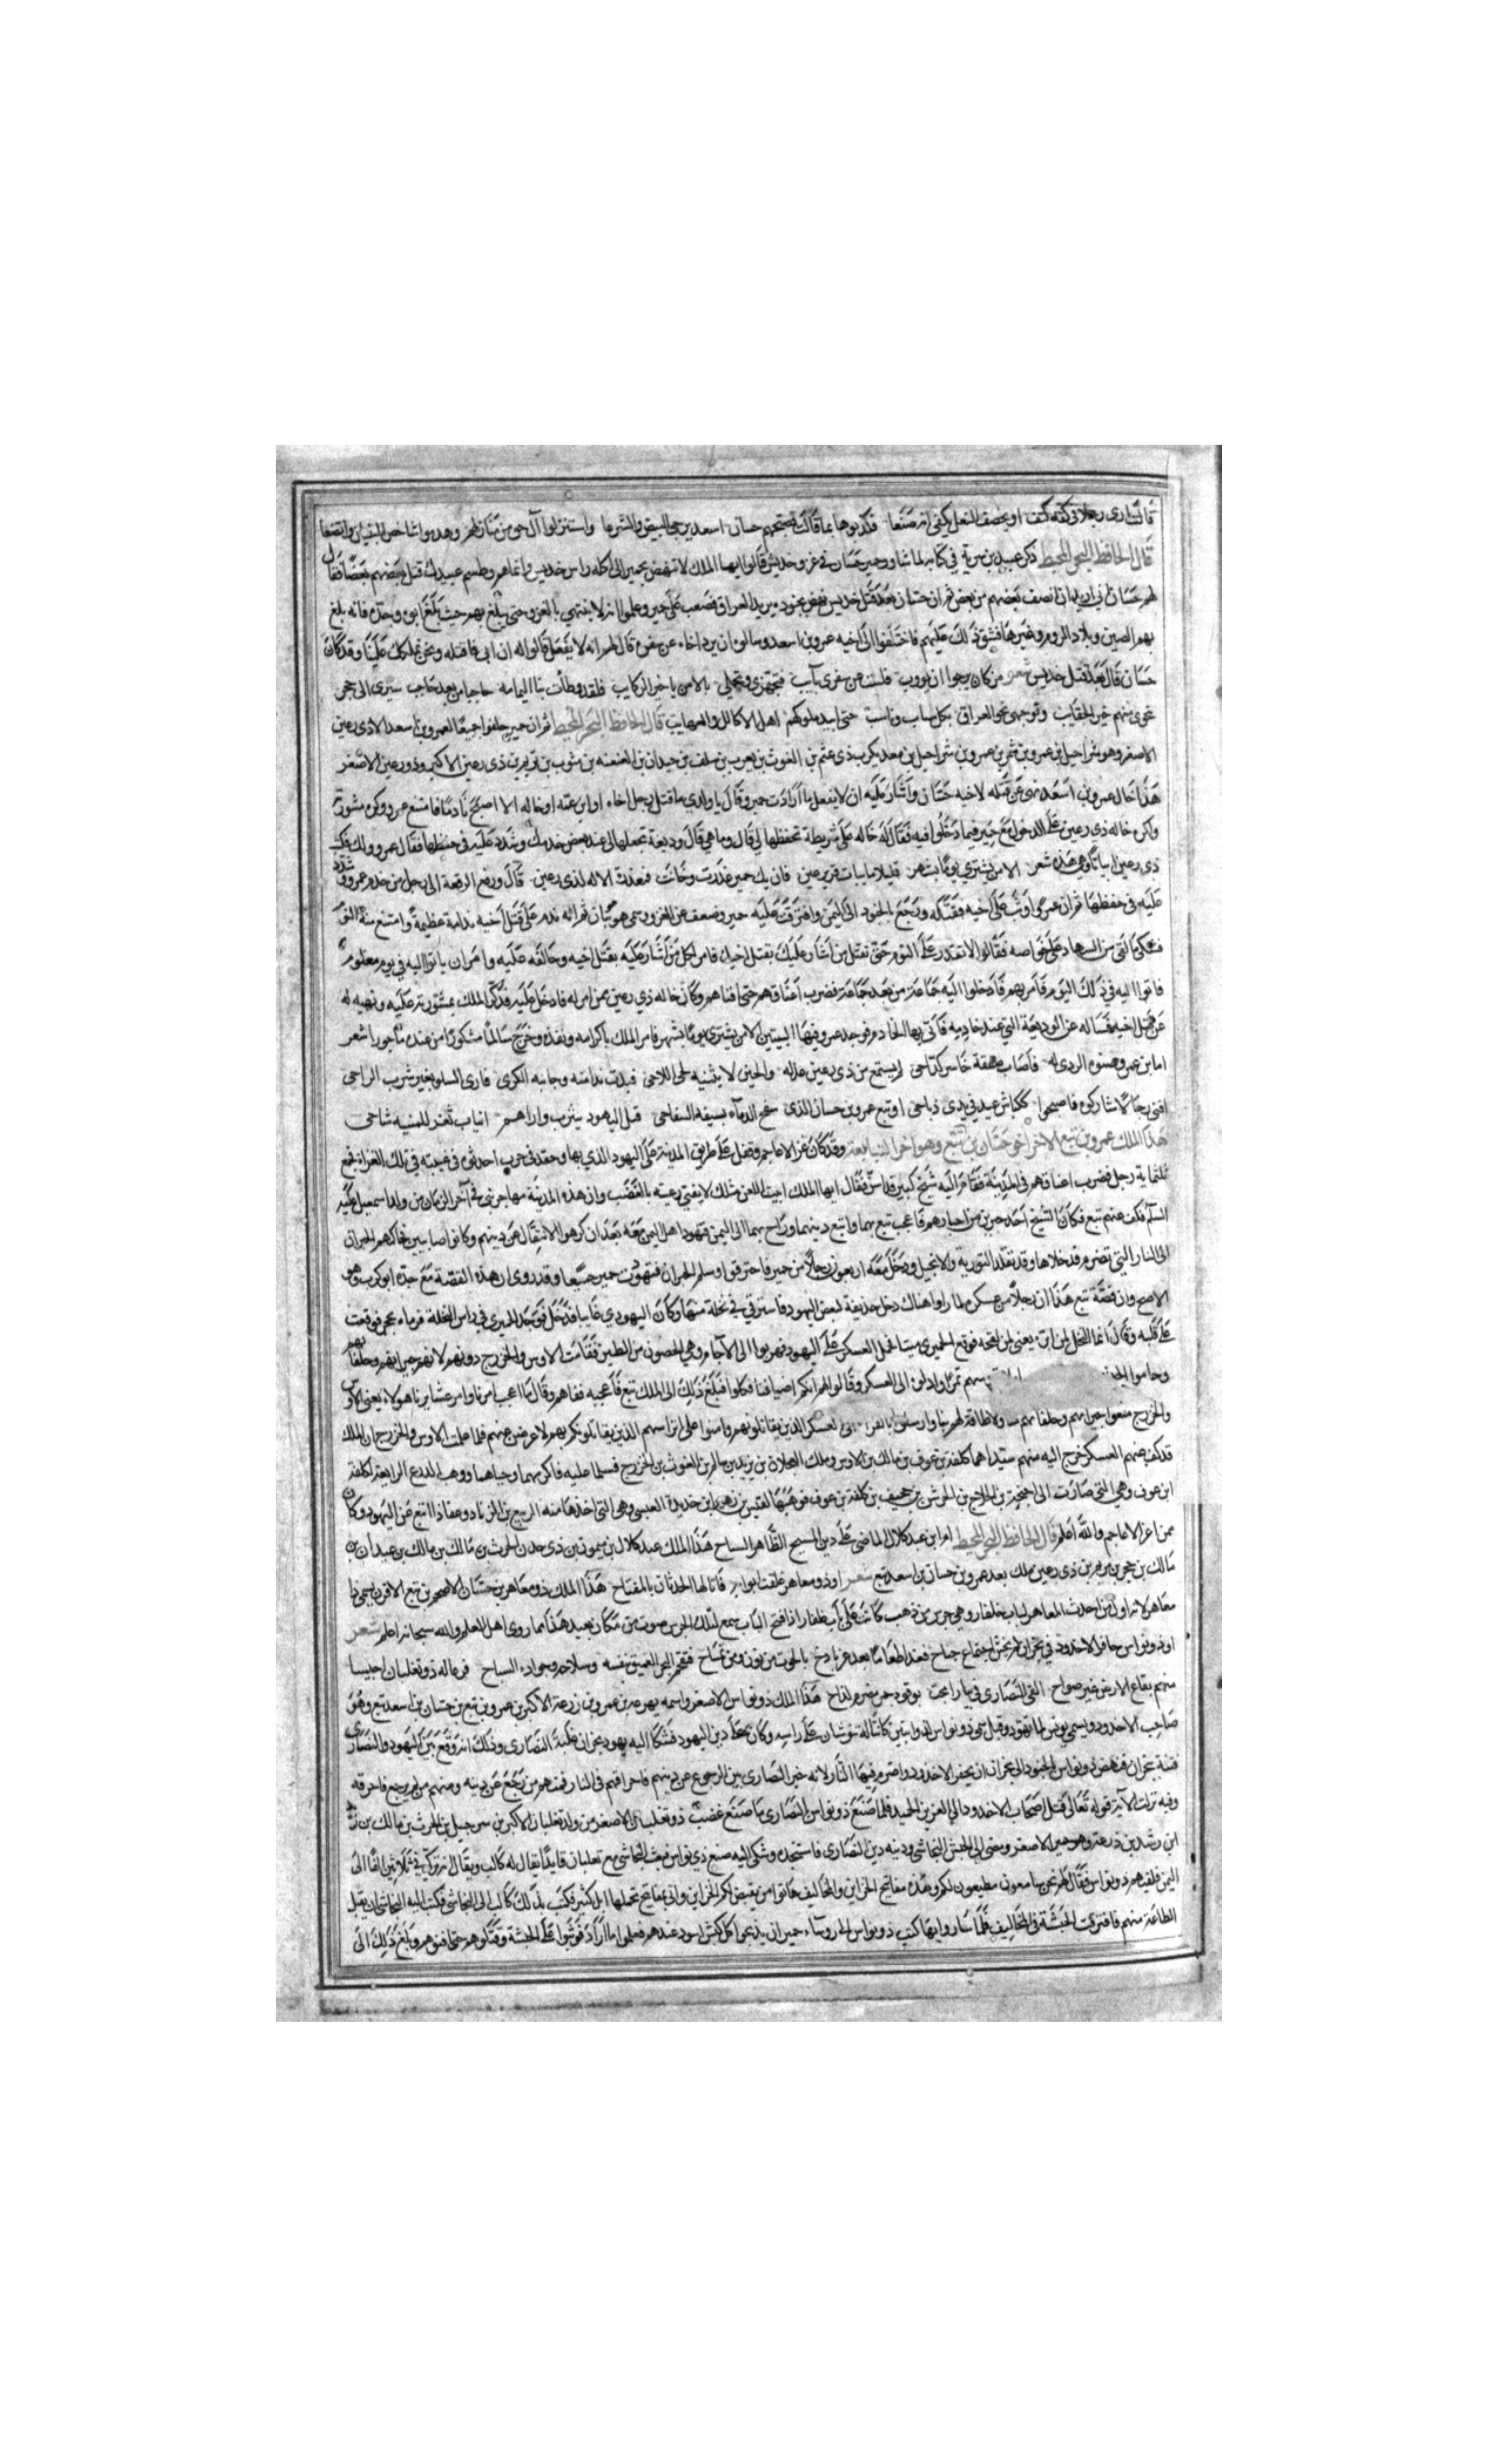 قالت ارى رجلا في كفه كتف او يخصف النعل لهفي اية صنعا فكذبوها بما قالت فصبحهم حسان اسعد يزجي البيض والشرعا واستنزلوا آل جو من منازلهم وهدموا شاخص البنيان واتضعا
قال الحافظ البحر المحيط ذكر عبيد بن سرية في كتابه لما شاور حمير حسان في غزو جديس قالوا ايها الملك لا تنهض بحمير الى اكلة راس جديس وانما هم وطسم عبيدك قتل بعضهم بعضا فقال
لهم حسان اني اريد ان انصف بعضهم من بعض ثم ان حسان بعد قتل جديس نهض بجنوده يريد العراق فصعب على حمير وعلموا انه لا ينتهي بالغزو حتى يبلغ بهم حيث بلغ ابوه وجده فانه بلغ
بهم الصين وبلاد الروم وغيرها فشق ذلك عليهم فاختلفوا الى اخيه عمرو بن اسعد وسالوه ان يرد اخاه عن سفره قال لهم انه لا يفعل قالوا له ان ابى فاقتله ونحن نملكك علينا وقد كان
حسان قال بعد قتل جديس شعر من كان يرجوا ان يووب فلست من سفري بآيب فتجهزي وتحملي بالامن يا خير الركايب فلقد وطأت بنا اليمامه حاجبا من بعد حاجب سيري الى حجر
حتى ابيد ملوكهم اهل الاكالل والعصايب قال الحافظ البحر المحيط ثم ان حمير حلفوا جميعا لعمرو بن اسعد الا ذي رعين
الاصغر وهو شراحيل بن عمرو بن شمر بن عمرو بن شراحيل بن معديكرب ذي عثم بن الغوث بن يعرب بن سلف بن حيدان بن
هذا خال عمرو بن اسعد نهى عن قتله لاخيه حسان واشار عليه ان لا يفعل ما ارادت حمير وقال يا ولدي ما قتل رجل اخاه او ابن عمه او خاله الا اصبح نادما فامتنع عمرو وكره مشورته
وكره خاله ذي رعين على الدخول مع حمير فيما دخلوا فيه فقال له خاله على شريطة تحفظها لي قال وما هي قال وديعة تجعلها لي عند بعض خدمك وشدد عليه في حفظها فقال عمرو ولك
ذي رعين ابياتا وهي هذه شعر الا من يشتري نوما بسهر قليلا ما يبات قرير عين فان يك حمير غدرت وخانت فمعذرة الاله لذي رعين قال ودفع الرقعة الى رجل من خدم عمرو وشدد
عليه في حفظها ثم ان عمروا وثب على اخيه فقتله ورجع الجنود الى اليمن وافترقت عليه حمير وضعف عن الغزو وسمي موثبان ثم انه ندم على قتل اخيه ندامة عظيمة وامتنع منه النوم
فشكى ما لقي من السهاد على خواصه فقالوا لا تقدر على النوم حتى تقتل من اشار عليك بقتل اخيك فامر كل من اشار عليه بقتل اخيه وحالفه عليه وامر ان ياتوا اليه في يوم معلوم
فاتوا اليه في ذلك اليوم فامر بهم فادخلوا اليه جماعة من بعد جماعة فضرب اعناقهم حتى افناهم وكان خاله ذي رعين ممن امر له فادخل عليه فذكر الملك بمشورته عليه ونهيه له
عن قتل اخيه فساله عن الوديعة التي عند خادمه فاتى بها الخادم فوجد عمرو فيها البيتين الا من يشتري نوما بسهر فامر الملك باكرامه ونفذه وخرج سالما مشكورا من عنده ماجورا شعر
لم يستمع من ذي رعين عذله والحين لا يثنيه لحي اللاحي فبدت ندامته وجانبه الكرى فارى السلو بغير شرب الراحي
افنى رجالا شاركوه فاصبحوا ككباش عيد في يدي ذباحي او تبع عمرو بن حسان الذي سفح الدماء بسيفه السفاحي قتل اليهود بيثرب واراهم انياب ثغر للمنيه شاحي
هذا الملك عمرو بن تبع الاخر اخو حسان بن تبع وهو اخر التبابعة وقد كان غزا الاعاجم وقفل على طريق المدينة على اليهود الذي بها وحقد في حرب احدثوه في غيبته في تلك الغزاة فجمع
ثلثماية رجل فضرب اعناقهم في المدينة فقام اليه شيخ كبير فقال ايها الملك ابيت اللعن مثلك لا يفني رعيته بالغضب وان هذه المدينة مهاجر نبي في آخر الزمان من ولد اسمعيل عليه
السلام فكف عنهم تبع فكان الشيخ احد حبرين من احبارهم فاعجب تبع بهما واتبع دينهما وراح بهما الى اليمن فتهود اهل اليمن معه بعد ان كرهوا الانتقال عن دينهم وكانوا صابيين فحاكمهم الحبران
الى النار التي تضرم فدخلاها وقد تقلدا التورية والانجيل ودخل معه اربعون رجلا من حمير فاحترقوا وسلم الحبران فتهودت حمير جميعا وقد روي ان هذه القصة مع جده ابو كرب وهو
الاصح وان قصة تبع هذا ان رجلا من عسكره لما راوا هناك دخل حديقة لبعض اليهود فاسترقى في نخلة منها وكان اليهودي غايبا فدخل فوجد الحميري في راس النخلة فرماه بحجر فوقعت
على قلبه وقال انما النخل لمن ابره يعني لمن لقحه فوقع الحميري ميتا فحمل العسكر على اليهود فهربوا الى الآجام وهي الحصون من الطين فقامت الاوس والخزرج دونهم لانهم جيرانهم وحلفاهم
تمرا وادلوه الى العسكر وقالوا لهم انكم اضيافنا فكلوا فبلغ ذلك الى الملك تبع فاعجبه فعاهم وقال ما اعجب امرنا وامر عشايرنا هولاء يعني الاوس
والخزرج منعوا جيرانهم وحلفاهم منا ولا طاقة لهم بنا وارسلوا
قد كف عنهم العسكر خرج اليه منهم سيداهما كلفة بن عوف بن مالك بن الاوس ومالك العجلان بن زيد بن سالم بن الغوث بن الخزرج فسلما عليه فاكرمهما وحباهما ووهب الدرع الرابعة لكلفة
ابن عوف وهي التي صارت الى احيحة بن الجلاح بن الحرش بن جحجبا بن كلفة بن عوف فوهبها لقيس بن زهير ابن جذيمة العبسي وهي التي اخذها منه الربيع بن زياد وعفا ذا تبع عن اليهود وكان
ممن اغزا الاعاجم والله اعلم قال الحافظ البحر المحيط ام ابن عبد كلال الماضي على دين المسيح الطاهر السباح هذا الملك عبد كلال بن ميمون بن ذي حدن الحرث بن مالك بن مالك بن عبدان بن
مالك بن حجر بن يريم بن ذي رعين ملك بعد عمرو بن حسان بن اسعد تبع شعر او ذو معاهر غلقت ابوابه فاتى لها الحدثان بالمفتاح هذا الملك ذو معاهر بن حسان الاصغر بن تبع الاقرن سمي ذا
معاهر لانه اول من احدث المعاهر لباب ظفار وهي جرس من ذهب كانت على باب ظفار اذا فتح الباب سمع لتلك الجرس صوت من مكان بعيد هذا مما روى اهل العلم والله سبحانه اعلم شعر
او ذو نواس حافر الاخدود في نجران لم يخش اجتماع جناح
منهم بقاع الارض غير صواح القى النصارى في نار احجت بوقود جمر مضرم لفاح هذا الملك ذو نواس الاصغر واسمه زرعة بن عمرو بن زرعة الاكبر بن عمرو بن تبع بن حسان بن اسعد تبع وهو
صاحب الاخدود ويسمى يوسف لما تهود وقيل سمي ذو نواس لذوابتين كانتا له تنوسان على راسه وكان على دين اليهود فشكا اليه يهود نجران غلبة النصارى وذلك انه وقع بين اليهود والنصارى
فتنة بنجران فنهض ذو نواس الجنود الى نجران ان يحفر الاخدود واضرم فيها النار لانه خير النصارى بين الرجوع عن دينهم فاحراقهم في النار فمنهم من رجع عن دينه ومنهم من لم يرجع فاحرقه
وفيه نزلت الآية قوله تعالى قتل اصحاب الاخدود الى العزيز الحميد فلما صنع ذو نواس النصارى ما صنع غضب ذو ثعلبان الاصغر من ولد ثعلبان الاكبر بن شرحبيل بن الحرث بن مالك بن زيد
ابن رشد بن زرعة وهو حمير الاصغر ومضى الى الحبش النجاشي ودينه دين النصارى فاستنجده وشكى اليه صنع ذي نواس فبعث النجاشي مع ثعلبان قايدا يقال له كالب ويقال انه زكي في ثلاثين الفا الى
اليمن فلقيهم ذو نواس فقال لهم نحن سامعون مطيعون لكم وهذه مفاتيح الخزاين والمخاليف هاتوا من يقبض لكم الخزاين واتى بمفاتيح تحملها ابل كثير فكتب بذلك كالب الى النجاشي فكتب اليه النجاشي ان يقبل
الطاعة منهم فافترقت الحبشة في المخاليف فلما ساروا بها كتب ذو نواس الى روساء حمير ان يذبحوا كل كبش اسود عندهم ففعلوا ما اراد فوثبوا على الحبشة وقتلوهم حتى افنوهم وبلغ ذلك الى